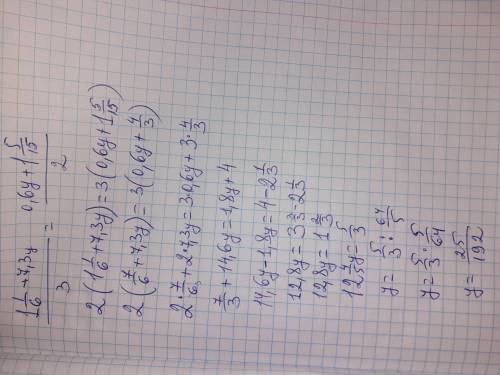 (1 1/6 + 7,3y)/3 = (0,6y + 1 5/15)/2
2(1 1/6 + 7,3y) = 3(0,6y + 1 5/15)
2(7/6 + 7,3y) = 3(0,6y + 4/3)
2·7/6 + 2·7,3y = 3·0,6y + 3·4/3
7/3 + 14,6y = 1,8y + 4
14,6y - 1,8y = 4 - 2 1/3
12,8y = 3 3/3 - 2 1/3
12,8y = 1 2/3
12 4/5 y = 5/3
y = 5/3 : 64/5
y = 5/3 · 5/64
y = 25/192